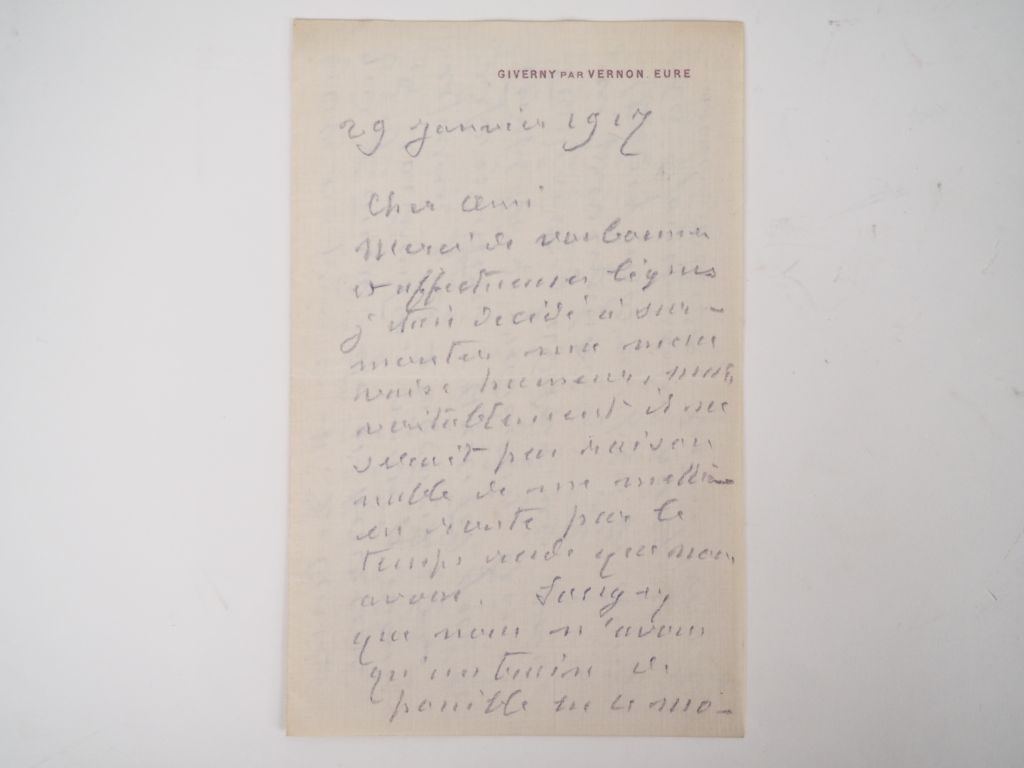 GIVERNY PAR VERNON. EURE
29 janvier 1917
Cher ami
Merci de vos bonnes
et affectueuses lignes
j'étais décidé à sur-
monter ma mau
vaise humeur, mais
véritablement il ne
serait peu raison
nable de me mettre
en route par le
temps rude que nous
avons. Songez
que nous n'avons
qu'un train de
possible en ce mo-